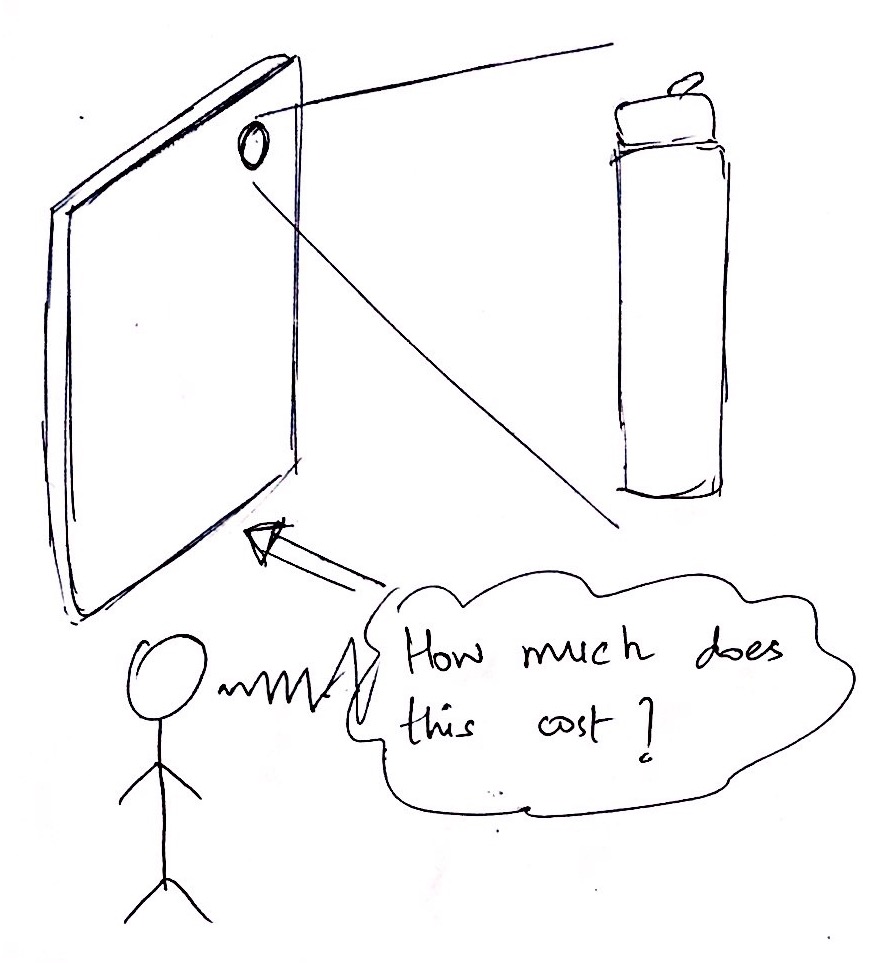 How much does
this cost?